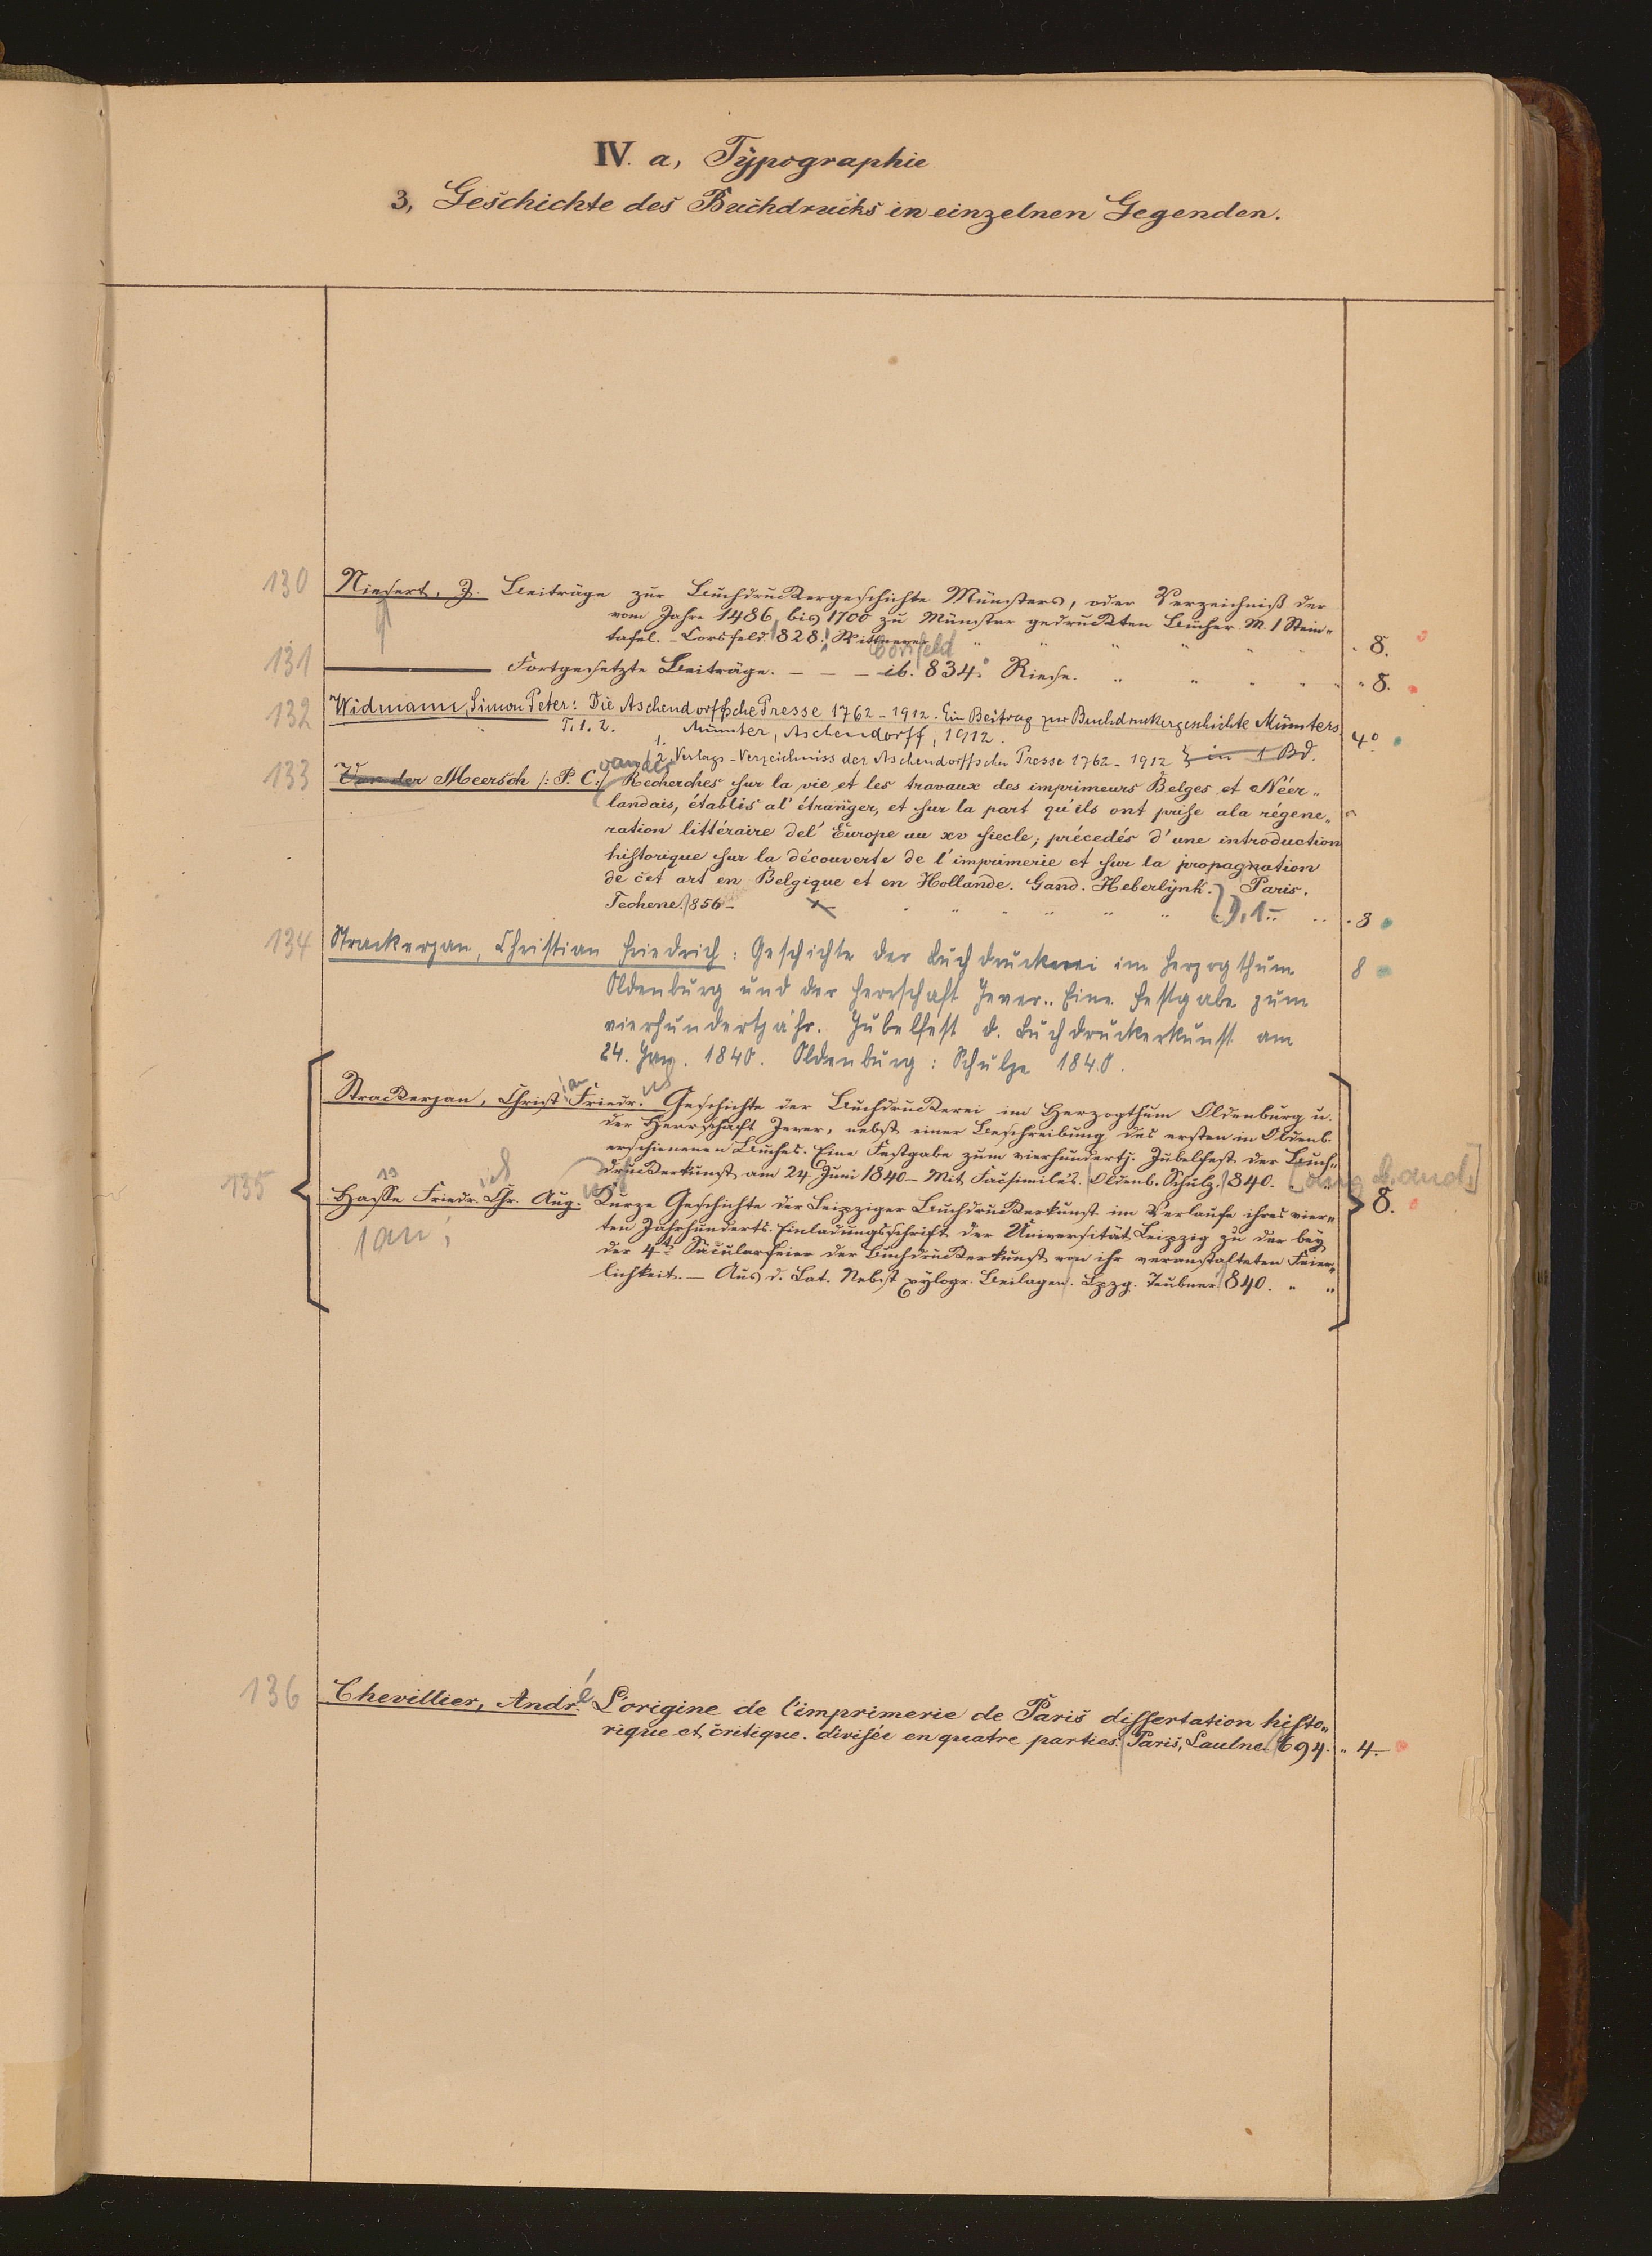 IV. a, Typographie
3, Geschichte des Buchdrucks in einzelnen Gegenden.
130 Niesert, J. Beiträge zur Buchdruckergeschichte Münsters, oder Verzeichniß der
vom Jahre 1486 bis 1700 zu Münster gedruckten Bücher. M. 1 Stein-
tafel. - Coesfeld. 828. Wittneven " " " " " " 8.
Coesfeld
131 ——— Fortgesetzte Beiträge. — — — ib. 834. Riese. " " " " " 8.
132 Widmann, Simon Peter: Die Aschendorffsche Presse 1762-1912. Ein Beitrag zur Buchdruckergeschichte Münsters
T. 1. 2. Münster, Aschendorff, 1912. 4°
1.
2. Verlags-Verzeichniss der Aschendorffschen Presse 1762-1912 } in 1 Bd.
vander
133 Van der Meersch /: P. C:/ Recherches sur la vie et les travaux des imprimeurs Belges et Néer„
landais, établis al' étranger, et sur la part qu'ils ont prise ala régene„
ration littéraire del' Europe au xv siecle; précedés d'une introduction
historique sur la découverte de l'imprimerie et sur la propagnation
de cet art en Belgique et en Hollande. Gand. Heberlynk. Paris.
Techene. 856- " " " " " " 1. " 8
134 Strackerjan, Christian Friedrich: Geschichte der Buchdruckerei im Herzogthum 8
Oldenburg und der Herrschaft Jever.. Eine Festgabe zum
vierhundertjähr. Jubelfest d. Buchdruckerkunst am
24. Jun. 1840. Oldenburg: Schulze 1840.
Strackerjan, Christ Friedr. Geschichte der Buchdruckerei im Herzogthum Oldenburg u.
der Herrschaft Jever, nebst einer Beschreibung des ersten in Oldenb.
erschienenen Buches. Eine Festgabe zum vierhundertj. Jubelfest der Buch-
druckerkunst am 24 Juni 1840 - Mit Facsimiles. Oldenb. Schulz. 840.
135 Hasse Friedr. Chr. Aug. Kurze Geschichte der Leipziger Buchdruckerkunst im Verlaufe ihres vier- 8.
ian;
ten Jahrhunderts. Einladungsschrift der Universität Leipzig zu der bey
der 4t. Säcularfeier der Buchdruckerkunst von ihr veranstalteten Feier-
lichkeit. — Aus d. Lat. Nebst xylogr. Beilagen. Lpzg. Teubner 840. " "
136 Chevillier, André L'origine de l'imprimerie de Paris dissertation histo„
rique et critique. divisée en quatre parties. Paris, Laulne. 694. " 4.